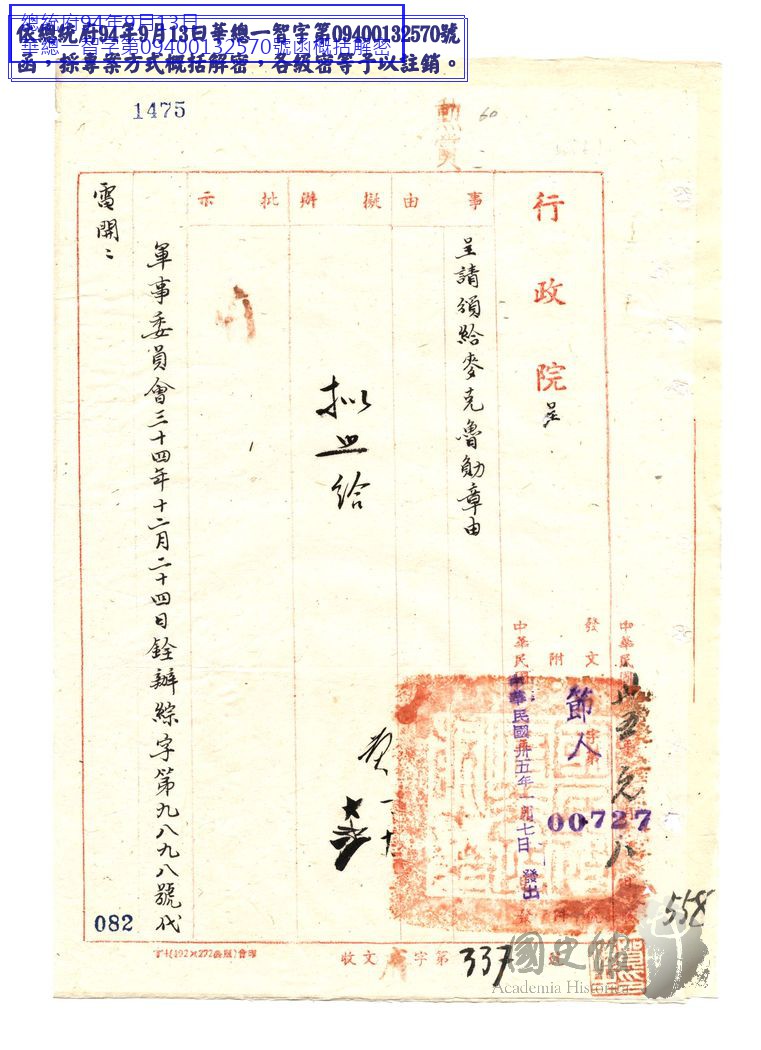 總統府94年9月13日
華總一智字第09400132570號函概括解密
依總統府94年9月13日華總一智字第09400132570號
函，採專案方式概括解密，各級密等予以註銷。
1475
勲賞
60
行政院呈
事由
擬辦
批示
呈請頒給麥克魯勛章由
拟照給
軍事委員會三十四年十二月二十四日銓辦綜字第九八九八號代
電開：
中華民國
發文
附
中華民國
卅五元八
節人
00727
中華民國卅五年一月七日發出
558
082
收文字第337號
國史館
Academia Historica